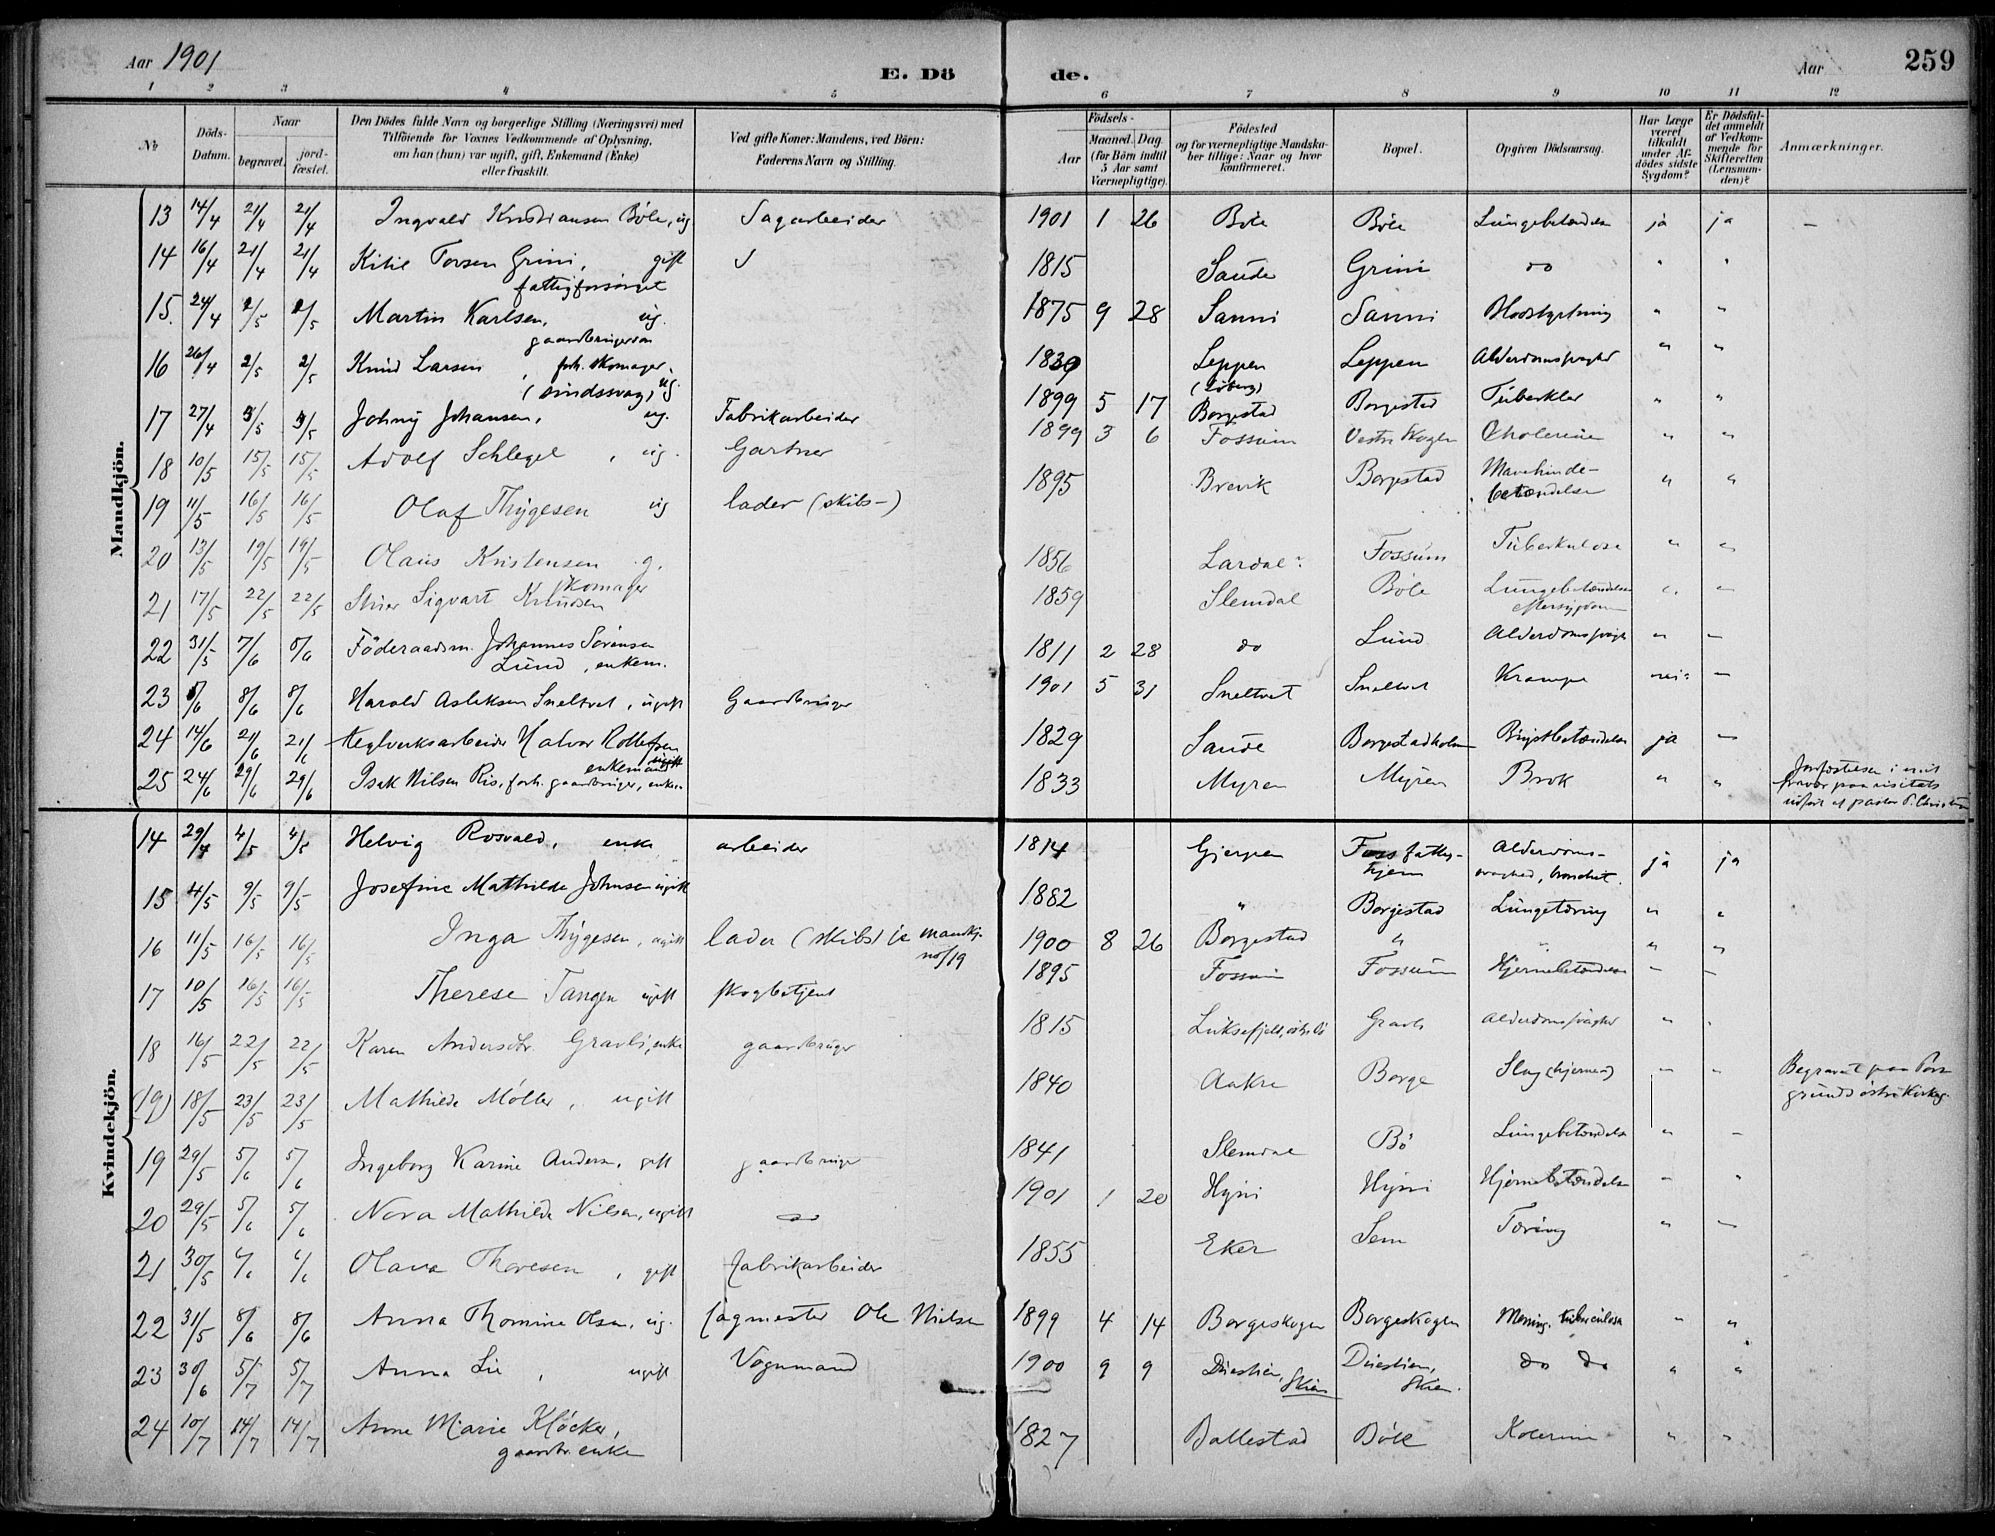 Aar 1901
E. Dö
de.
Aar
259
1 2 3 4 5 6 7 8 9 10 11 12
№
Döds-Datum.
Naar
begravet.
jordfæstet.
Den Dödes fulde Navn og borgerlige Stilling (Næringsvei) med
Tilföiende for Voxnes Vedkommende af Oplysning,
om han (hun) var ugift, gift, Enkemand (Enke)
eller fraskilt.
Ved gifte Koner: Mandens, ved Börn:
Faderens Navn og Stilling.
Födsels-
Aar
Maaned.
Dag
(for Börn indtil
5 Aar samt
Værnepligtige).
Födested
og for værnepligtige Mandska-
ber tillige: Naar og hvor
konfirmeret.
Bopæl.
Opgiven Dödsaarsag.
Har Læge
været
tilkaldt
under Af-
dødes sidste
Sygdom?
Er Dödsfal-
det anmeldt
af Vedkom-
mende for
Skifteretten
(Lensman-
den)?
Anmærkninger.
Mandkjön.
13 14/4 21/4 21/4 Ingvald Kristiansen Böle, ug Sagarbeider 1901 1 26 Böle Böle Lungebetændelse ja ja –
14 16/4 21/4 21/4 Kitil Torsen Grini, gift 1815 Saude Grini do " "
fattigforsörget
15. 24/4 2/5 2/5 Martin Karlsen, ug. 1875 9 28 Sanni Sanni Blodstyrtning " "
gaardbrugersön
16 26/4 2/5 2/5 Knud Larsen, forh. skomager. 1830 Leppen Leppen Alderdomssvaghed " "
(sindssvag) ug
17 27/4 3/5 3/5 Johny Johansen, ug. Fabrikarbeider 1899 5 17 Borgestad Borgestad Tuberkler " "
18 10/5 15/5 15/5 Adolf Schlegel, ug. Gartner 1899 3 6 Fossum Vestre Skogen Cholerine " "
19 11/5 16/5 16/5 Olaf Thygesen ug lader (skibs-) 1895 Brevik Borgestad Mavehinde-
betændelse " "
20 13/5 19/5 19/5 Olaus Kristensen g. 1856 Lardal Fossum Tuberkulose " "
21 17/5 22/5 22/5 Sigvart Knudsen 1859 Slemdal Böle Lungebetændelse
skomager
22 31/5 7/6 Föderaadsm. Johannes Sörensen 1811 2 28 do Lund Alderdomssvagh " –
Lund, enkem.
23 8/6 8/6 Harald Asleksen Sneltvet, ugift Gaardbruger 1901 5 31 Sneltvet Sneltvet Krampe nei –
24 14/6 21/6 21/6 Teglverksarbeider Halvor Rollefsen 1829 Saude Borgestadholm Brystbetændelse ja –
enkemand
25 24/6 29/6 29/6 Isak Nilsen Ris, forh. gaardbruger, enkem 1833 Myren Myren Brok " "
Jordfæstelsen i mit
fravær paa visitats
udført af pastor
Kvindekjön.
14 29/4 4/5 4/5 Helvig Rosvald, enke arbeider 1814 Gjerpen Foss fattig-
hjem Alderdoms-
svaghed, bronchit. ja ja
15 4/5 9/5 9/5 Josefine Mathilde Johnsen ugift 1882 " Borgestad Lungetæring " "
16 11/5 16/5 16/5 Inga Thygesen, ugift lader (skibs) mandkj. 1900 8 26 Borgestad " " " "
no/19
17 10/5 16/5 16/5 Therese Tangen ugift skogbetjent 1895 Fossum Fossum Hjernebetændelse – –
18 16/5 22/5 22/5 Karen Andersdtr. Gravli, enke gaardbruger 1815 Luksefjeld Gravli Alderdomssvaghed "
(19) 18/5 23/5 23/5 Mathilde Möller, ugift 1840 Aakre Borge Slag (hjernen) – " Begravet paa Pors
grunds östre Kirkeg.
19 29/5 5/6 5/6 Ingeborg Karine Anders., gift gaardbruger 1841 Slemdal Bö Lungebetændelse " –
20 29/5 5/6 5/6 Nora Mathilde Nilsen, ugift do 1901 1 20 Hyni Hyni Hjernebetændelse – "
21 30/5 6/6 6/6 Olava Thoresen, gift fabrikarbeider 1855 Eker Sem Tæring " –
22 31/5 8/6 8/6 Anna Thomine Olsen, ug. sagmester Ole Nielsen 1899 4 14 Borgeskogen Borgeskogen Mening. tuberculosa " "
23 30/6 5/7 5/7 Anna Lie, ugift Vognmand 1900 9 9 Duestien, Skien Duestien,
Skien. do do " "
24 10/7 14/7 14/7 Anne Marie Klöcker, 1827 Ballestad Böle Kolerine " "
gaardbr. enke